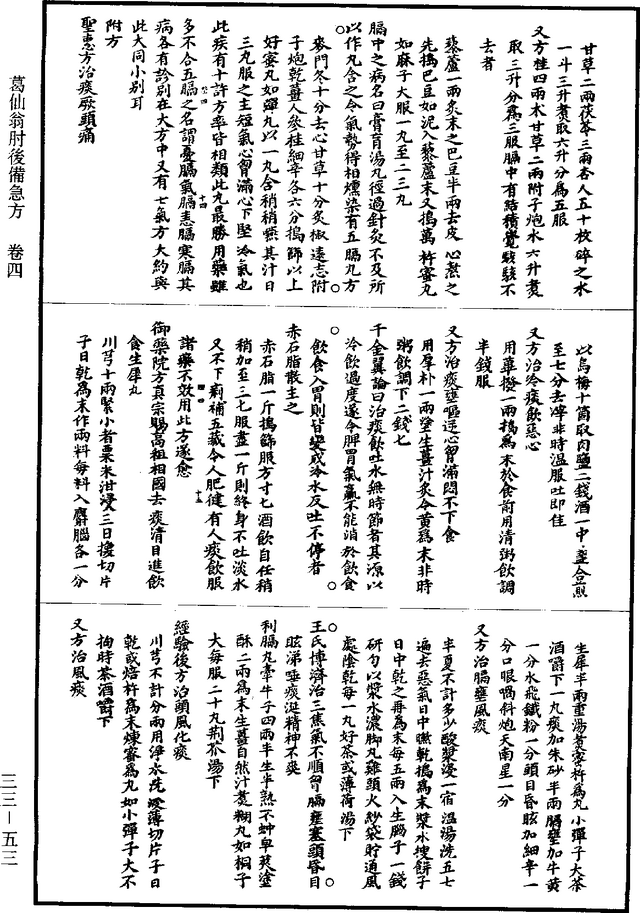 甘草二兩茯苓三兩杏人五十枚碎之水
一斗三升煑取六升分爲五服
又方桂四兩朮甘草二兩附子炮水六升煑
取三升分爲三服膈中有結積覺駭駭不
去者
藜蘆一兩炙末之巴豆半兩去皮心熬之
先擣巴豆如泥入藜蘆末又擣萬杵蜜丸
如麻子大服一丸至二三丸
膈中之病名曰膏肓湯丸徑過針灸不及所
以作丸含之令氣勢得相燻染有五膈丸方
麥門冬十分去心甘草十分炙椒遠志附
子炮乾薑人參桂細辛各六分擣篩以上
好蜜丸如彈丸以一丸含稍稍嚥其汁日
三丸服之主短氣心胷滿心下堅冷氣也
此疾有十許方率皆相類此丸最勝用藥雖
多不合五膈之名謂憂膈氣膈恚膈寒膈其
病各有診別在大方中又有七氣方大約與
此大同小別耳
附方
聖惠方治痰厥頭痛
以烏梅十箇取肉鹽二錢酒一中盞合煎
至七分去滓非時溫服吐即佳
又方治冷痰飲惡心
用蓽撥一兩擣爲末於食前用清粥飲調
半錢服
又方治痰壅嘔逆心胷滿悶不下食
用厚朴一兩塗生薑汁炙令黃爲末非時
粥飲調下二錢匕
千金翼論曰治痰飲吐水無時節者其源以
冷飲過度遂令脾胃氣羸不能消於飲食
飲食入胃則皆變成冷水反吐不停者
赤石脂散主之
赤石脂一斤擣篩服方寸匕酒飲自任稍
稍加至三匕服盡一斤則終身不吐淡水
又不下痢補五藏令人肥健有人痰飲服
諸藥不效用此方遂愈
御藥院方真宗賜高祖相國去痰清目進飲
食生犀丸
川芎十兩緊小者粟米泔浸三日換切片
子日乾爲末作兩料每料入麝腦各一分
生犀半兩重湯煑蜜杵爲丸小彈子大茶
酒嚼下一丸痰加朱砂半兩膈壅加牛黃
一分水飛鐵粉一分頭目昏眩加細辛一
分口眼喎斜炮天南星一分
又方治膈壅風痰
半夏不計多少酸漿浸一宿溫湯洗五七
遍去惡氣日中曬乾擣爲末漿水搜餅子
日中乾之再爲末每五兩入生腦子一錢
研勻以漿水濃脚丸雞頭大紗袋貯通風
處陰乾每一丸好茶或薄荷湯下
王氏博濟治三焦氣不順胷膈壅塞頭昏目
眩涕唾痰涎精神不爽
利膈丸牽牛子四兩半生半熟不蚛皁莢塗
酥二兩爲末生薑自然汁煑糊丸如桐子
大每服二十丸荊芥湯下
經驗後方治頭風化痰
川芎不計分兩用淨水洗浸薄切片子日
乾或焙杵爲末煉蜜爲丸如小彈子大不
拘時茶酒嚼下
又方治風痰
葛仙翁肘後備急方 卷四
三三－五三